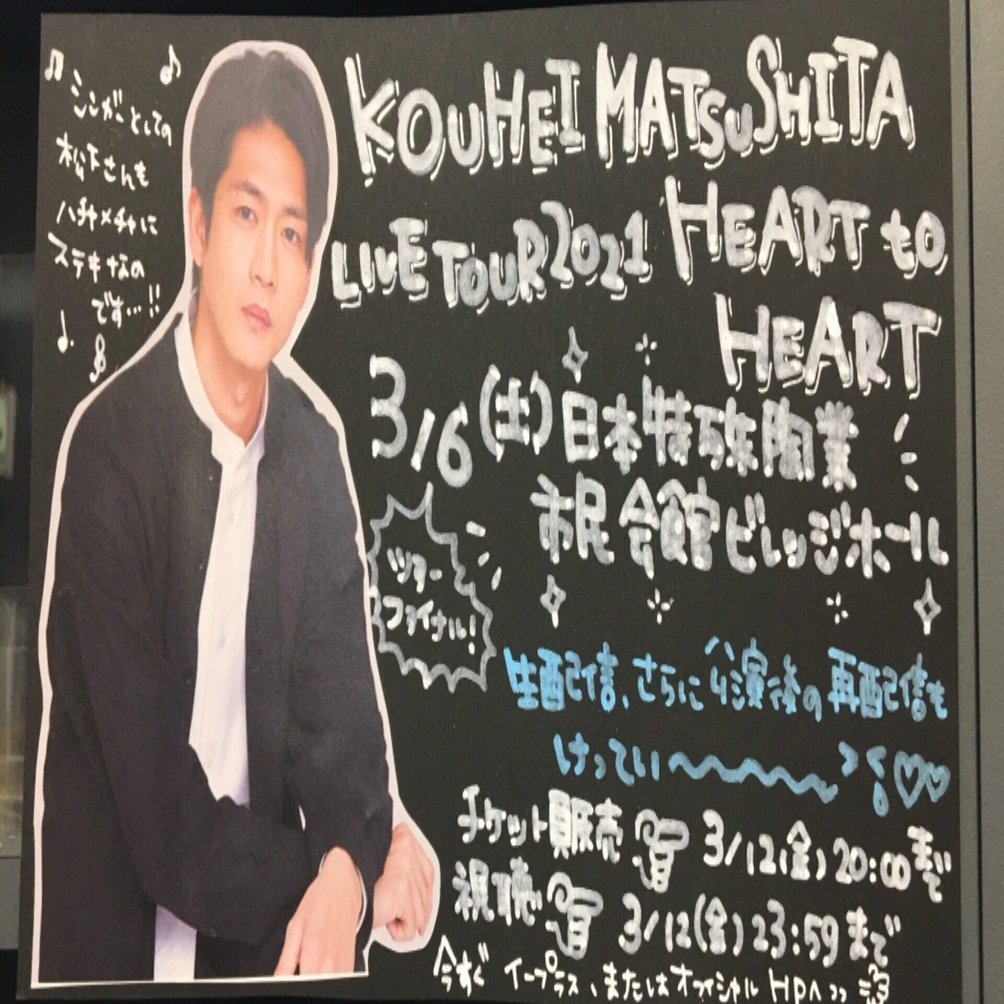 シンガーとしての
松下さんも
ハチャメチャに
ステキなの
です…!!
KOUHEI MATSUSHITA
LIVE TOUR 2021 HEART to
HEART
3/6(土)日本特殊陶業
市民会館ビレッジホール
ツアー
ファイナル!
生配信、さらに公演後の再配信も
けってい〜〜〜〜っ!♡♡
チケット販売 3/12(金)20:00まで
視聴 3/12(金)23:59まで
今すぐ イープラス、またはオフィシャル HPへ>>